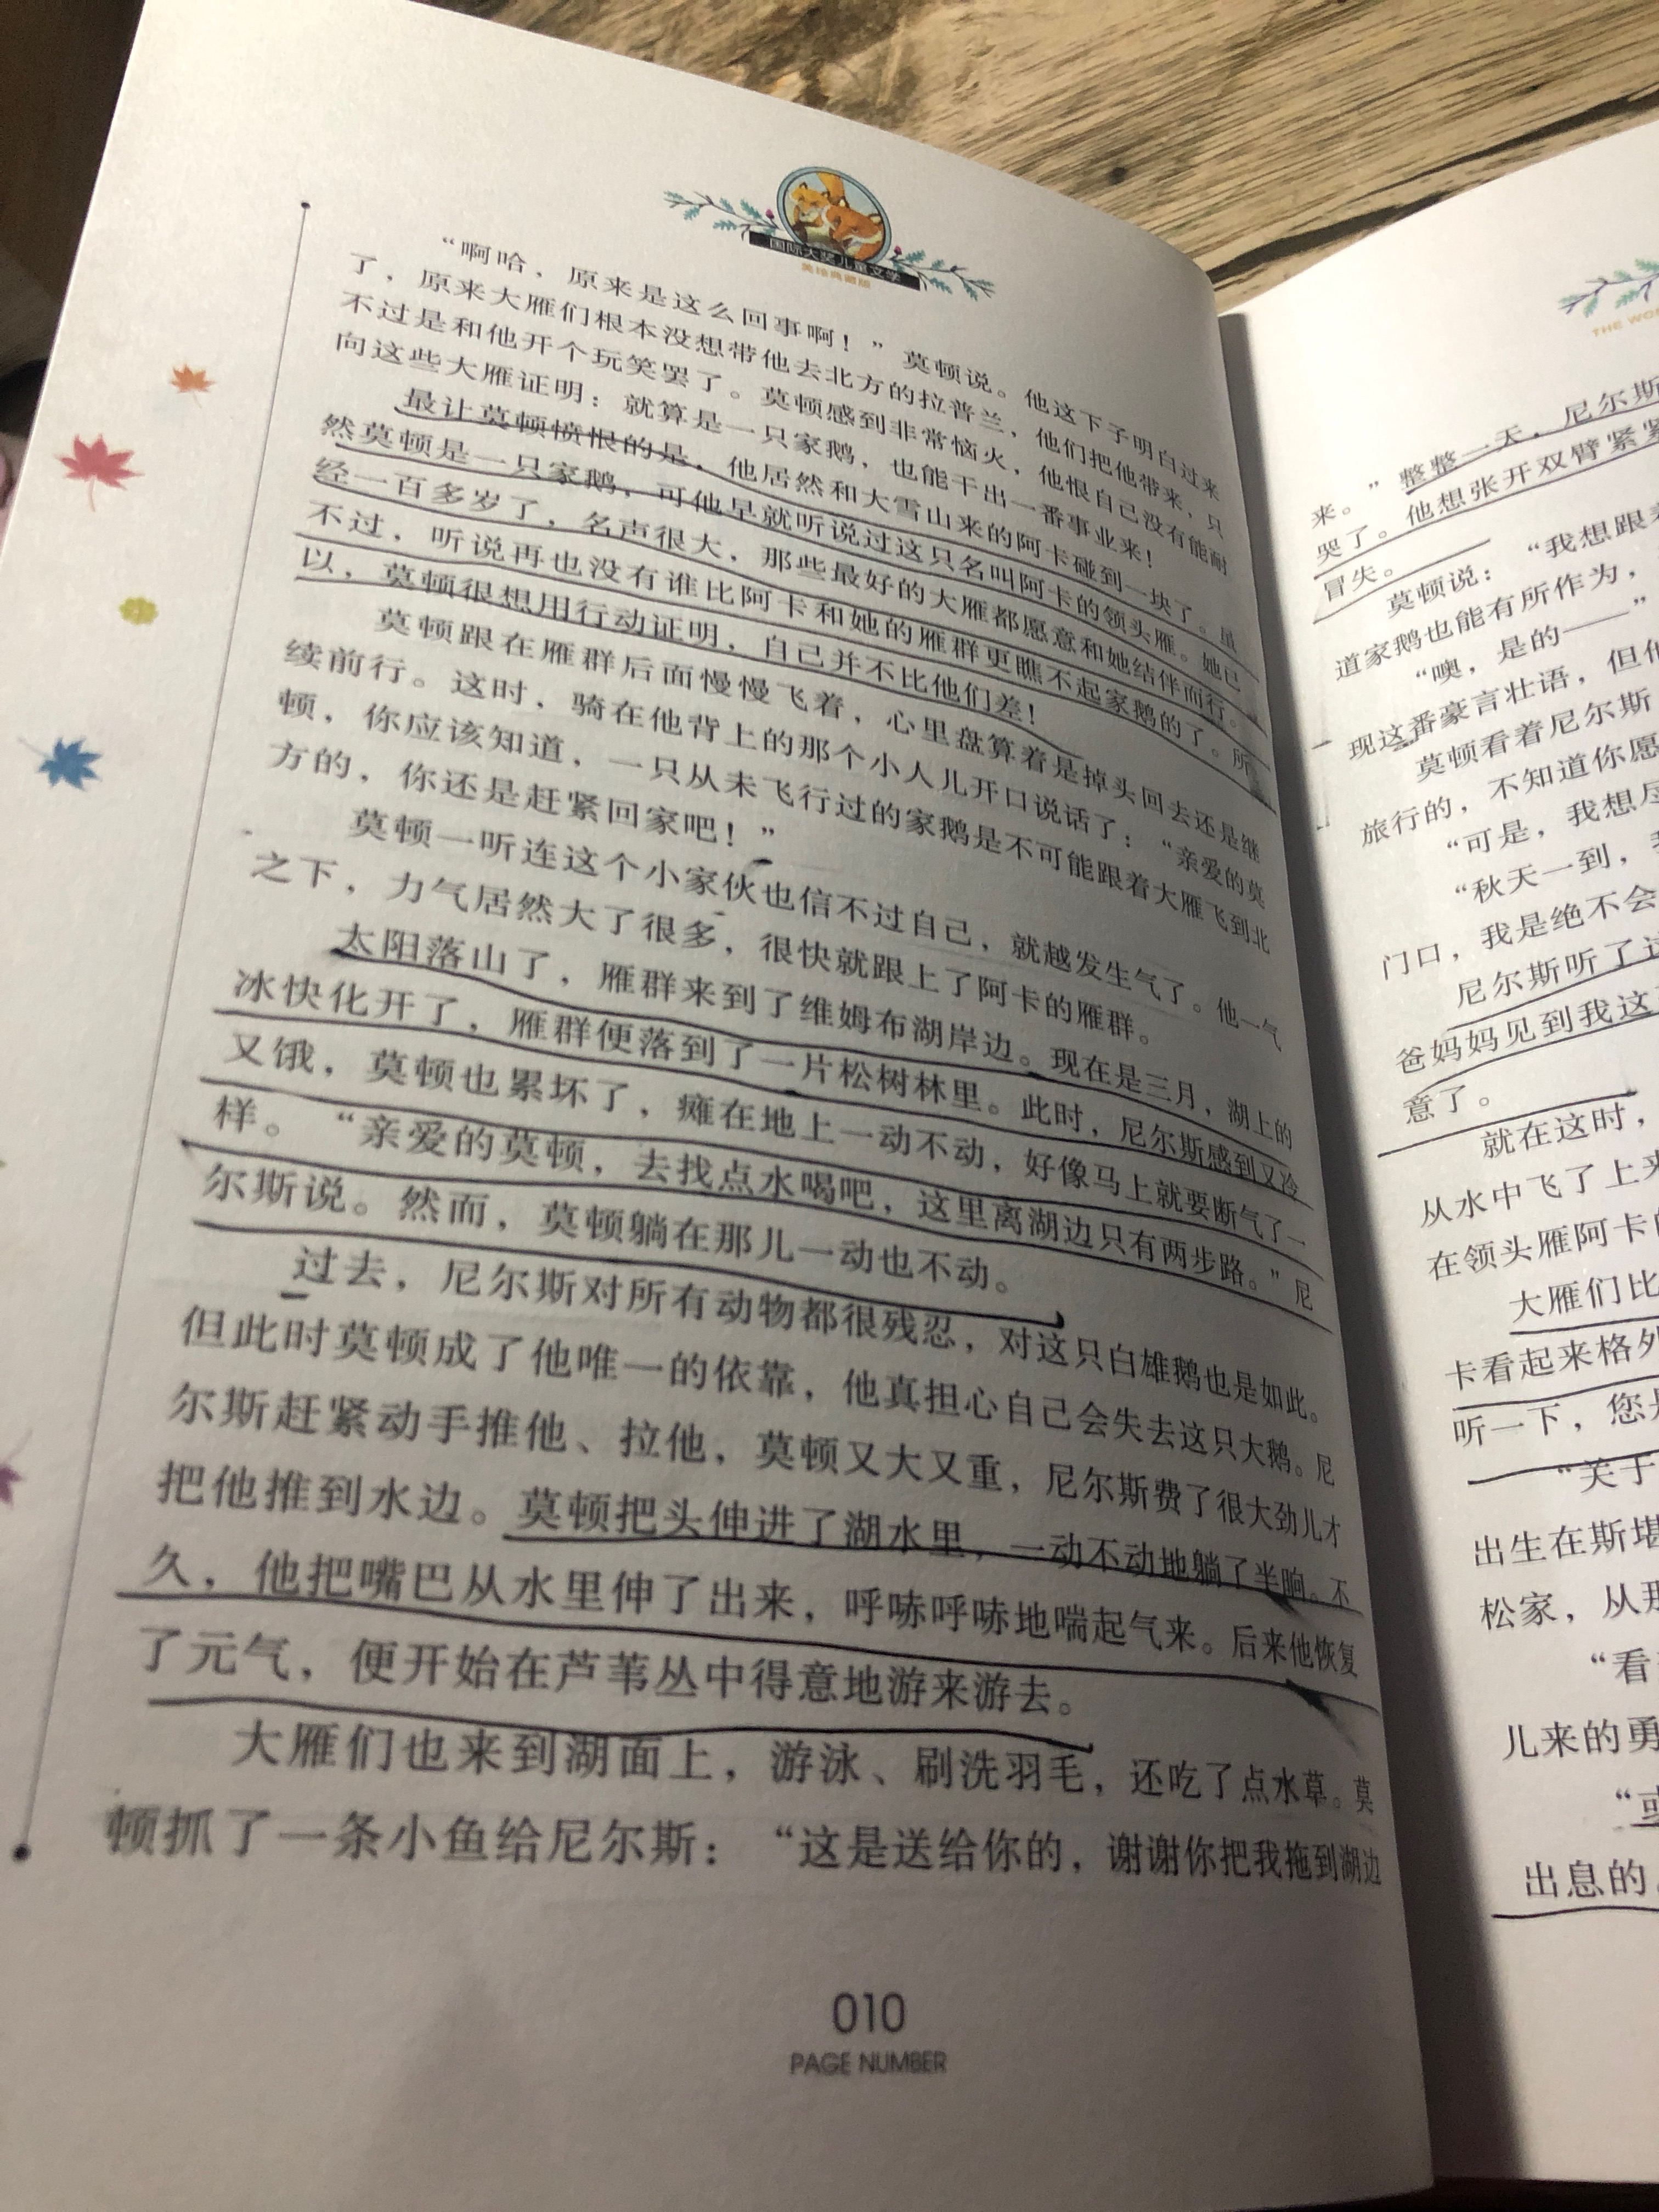 国际大奖儿童文学
美绘典藏版
“啊哈，原来是这么回事啊！”莫顿说。他这下子明白过来
了，原来大雁们根本没想带他去北方的拉普兰，他们把他带来，只
不过是和他开个玩笑罢了。莫顿感到非常恼火，他恨自己没有能耐
向这些大雁证明：就算是一只家鹅，也能干出一番事业来！
最让莫顿愤恨的是，他居然和大雪山来的阿卡碰到一块了。虽
然莫顿是一只家鹅，可他早就听说过这只名叫阿卡的领头雁。她已
经一百多岁了，名声很大，那些最好的大雁都愿意和她结伴而行。
不过，听说再也没有谁比阿卡和她的雁群更瞧不起家鹅的了。所
以，莫顿很想用行动证明，自己并不比他们差！
莫顿跟在雁群后面慢慢飞着，心里盘算着是掉头回去还是继
续前行。这时，骑在他背上的那个小人儿开口说话了：“亲爱的莫
顿，你应该知道，一只从未飞行过的家鹅是不可能跟着大雁飞到北
方的，你还是赶紧回家吧！”
莫顿一听连这个小家伙也信不过自己，就越发生气了。他一气
之下，力气居然大了很多，很快就跟上了阿卡的雁群。
太阳落山了，雁群来到了维姆布湖岸边。现在是三月，湖上的
冰快化开了，雁群便落到了一片松树林里。此时，尼尔斯感到又冷
又饿，莫顿也累坏了，瘫在地上一动不动，好像马上就要断气了一
样。“亲爱的莫顿，去找点水喝吧，这里离湖边只有两步路。”尼
尔斯说。然而，莫顿躺在那儿一动也不动。
过去，尼尔斯对所有动物都很残忍，对这只白雄鹅也是如此。
但此时莫顿成了他唯一的依靠，他真担心自己会失去这只大鹅。尼
尔斯赶紧动手推他、拉他，莫顿又大又重，尼尔斯费了很大劲儿才
把他推到水边。莫顿把头伸进了湖水里，一动不动地躺了半晌。不
久，他把嘴巴从水里伸了出来，呼哧呼哧地喘起气来。后来他恢复
了元气，便开始在芦苇丛中得意地游来游去。
大雁们也来到湖面上，游泳、刷洗羽毛，还吃了点水草。莫
顿抓了一条小鱼给尼尔斯：“这是送给你的，谢谢你把我拖到湖边
010
PAGE NUMBER
THE WO
来。”整整一天，尼尔斯
哭了。他想张开双臂紧紧
冒失。
莫顿说：“我想跟
道家鹅也能有所作为，
“噢，是的——”
现这番豪言壮语，但他
莫顿看着尼尔斯
旅行的，不知道你愿
“可是，我想尽
“秋天一到，
门口，我是绝不会
尼尔斯听了这
爸妈妈见到我这
意了。
就在这时，
从水中飞了上来
在领头雁阿卡的
大雁们比
卡看起来格外
听一下，您是
“关于
出生在斯堪
松家，从那
“看
儿来的勇
“或
出息的